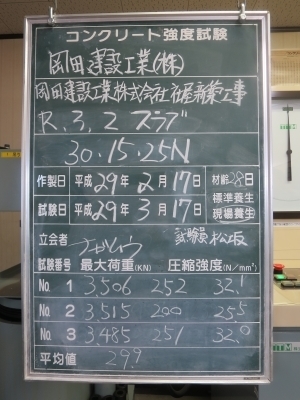 コンクリート強度試験
岡田建設工業(株)
岡田建設工業株式会社社屋新築工事
R,3,2 スラブ
30-15-25N
作製日 平成29年2月17日 材齢28日
試験日 平成29年3月17日 標準養生 現場養生
立会者 試験員 松坂
試験番号 最大荷重(KN) 圧縮強度(N/mm²)
No. 1 3,506 252 32.1
No. 2 3,515 200 25.5
No. 3 3,485 251 32.0
平均値 29.9